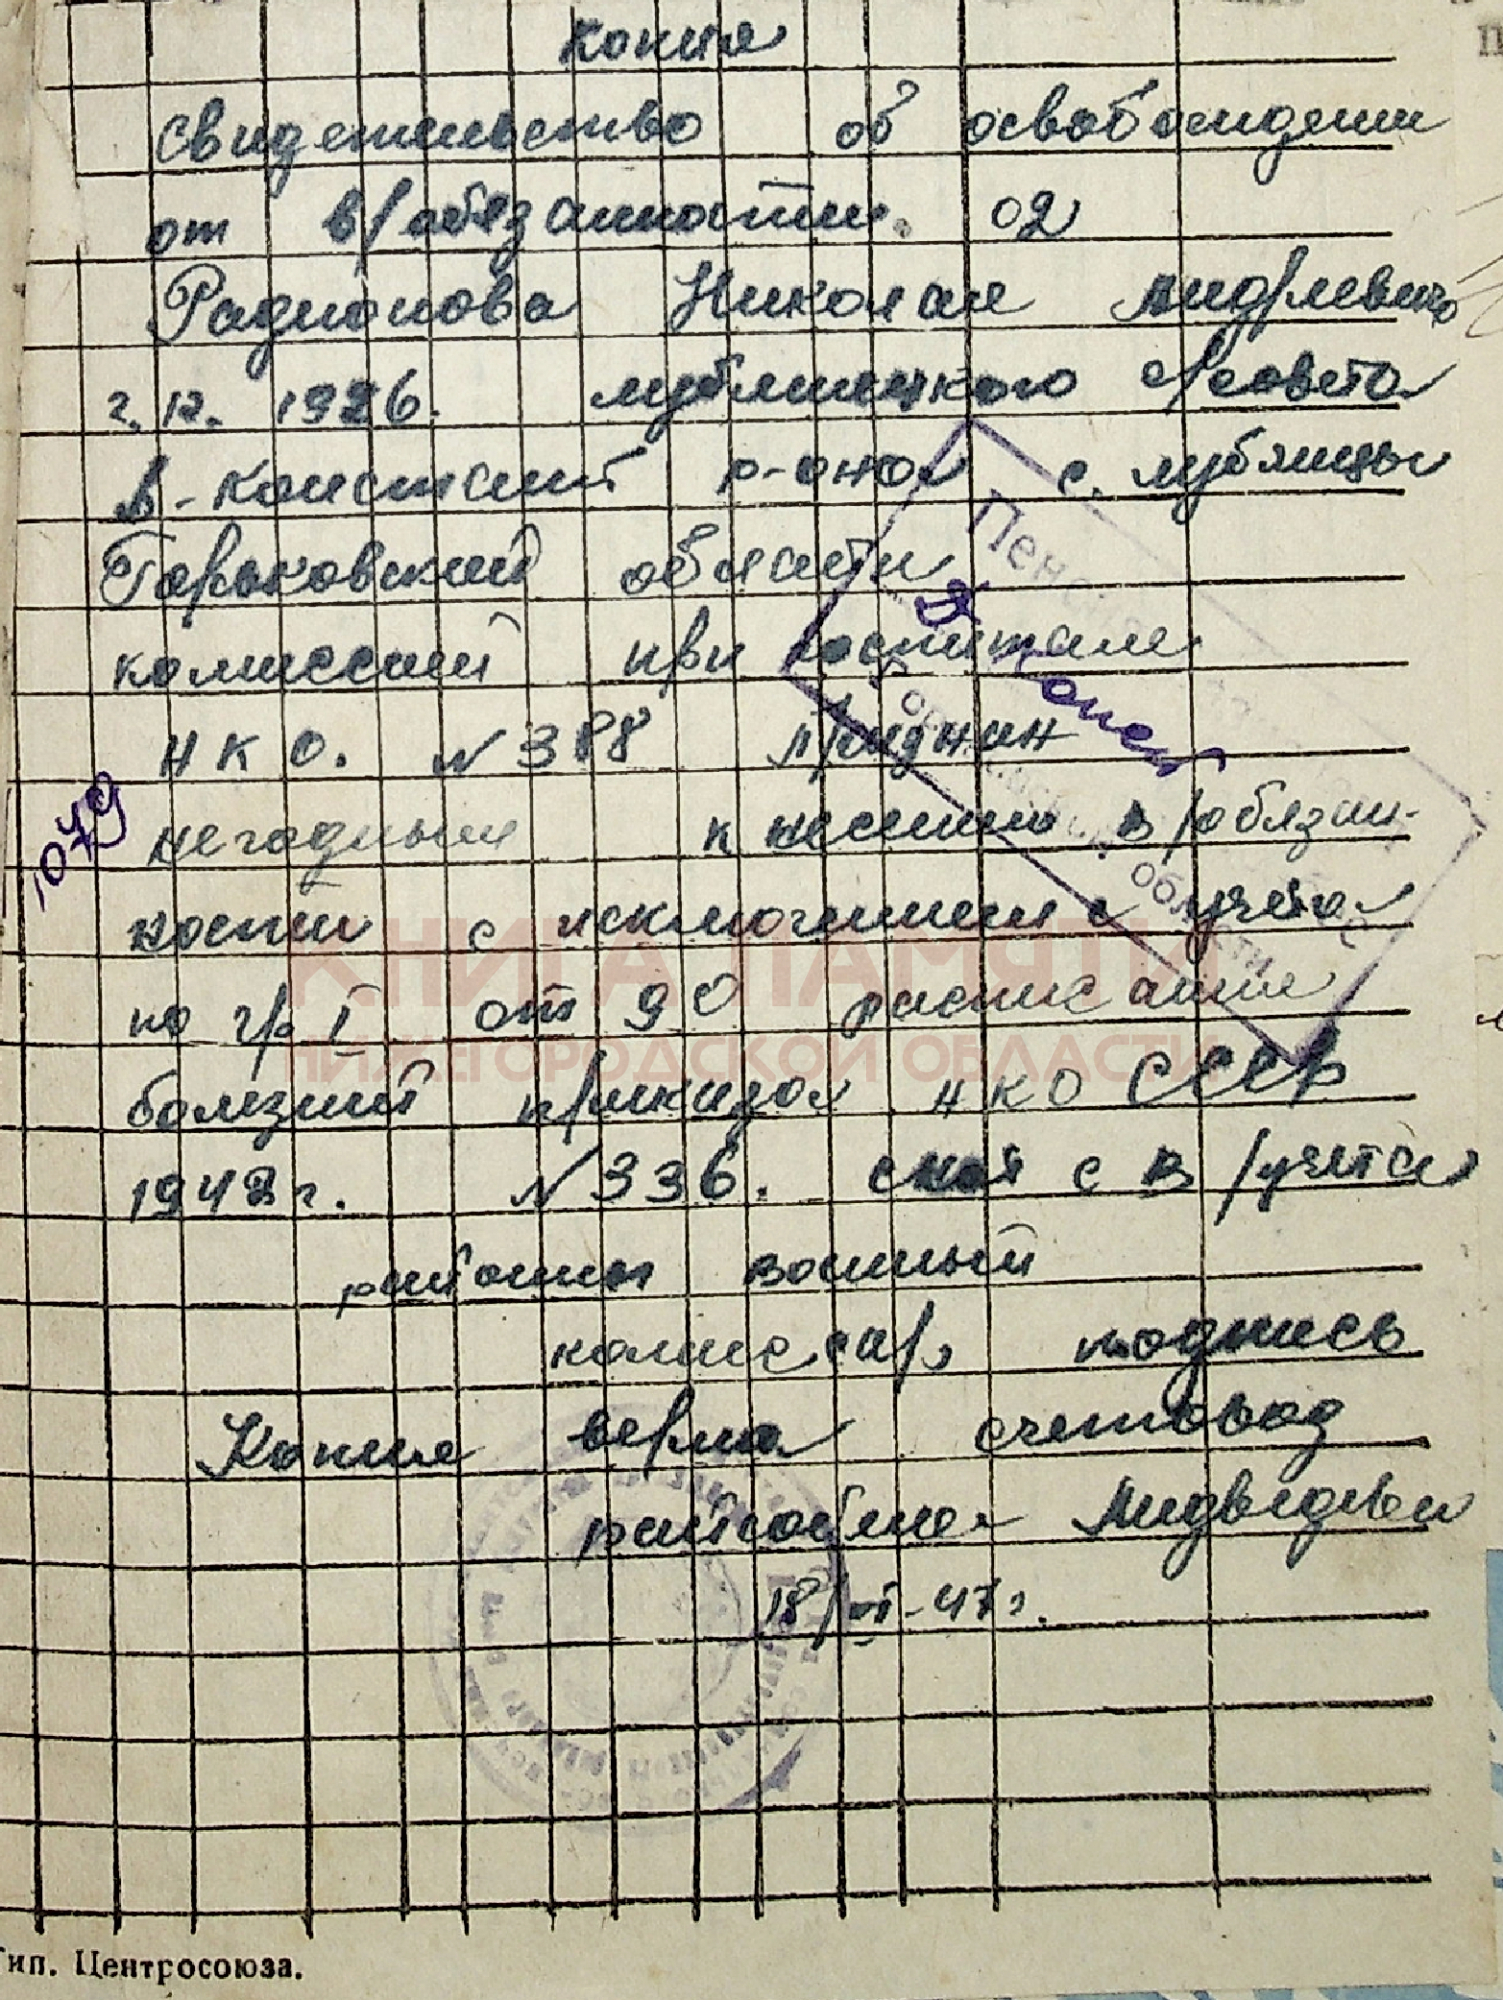 копия
свидетельство об освобождении
от в/обязанности. 02
Радионова Николая Андреевича
г. р. 1926. лубянецкого с/совета
Б-Констант р-она с. лубянцы
Горьковский области
комиссией при госпитале
НКО. № 388 признан
негодным к несению в/обязан-
ности с исключением с учета
по гр. I ст 90 расписания
болезний приказа НКО СССР
1942 г. № 336. снят с в/учета
райтоный военный
комиссар подпись
Копия верна счетовод
райсобеса Медведева
18/VI-47 г.
1079
Пенсия
области
КНИГА ПАМЯТИ
НИЖЕГОРОДСКОЙ ОБЛАСТИ
Тип. Центросоюза.